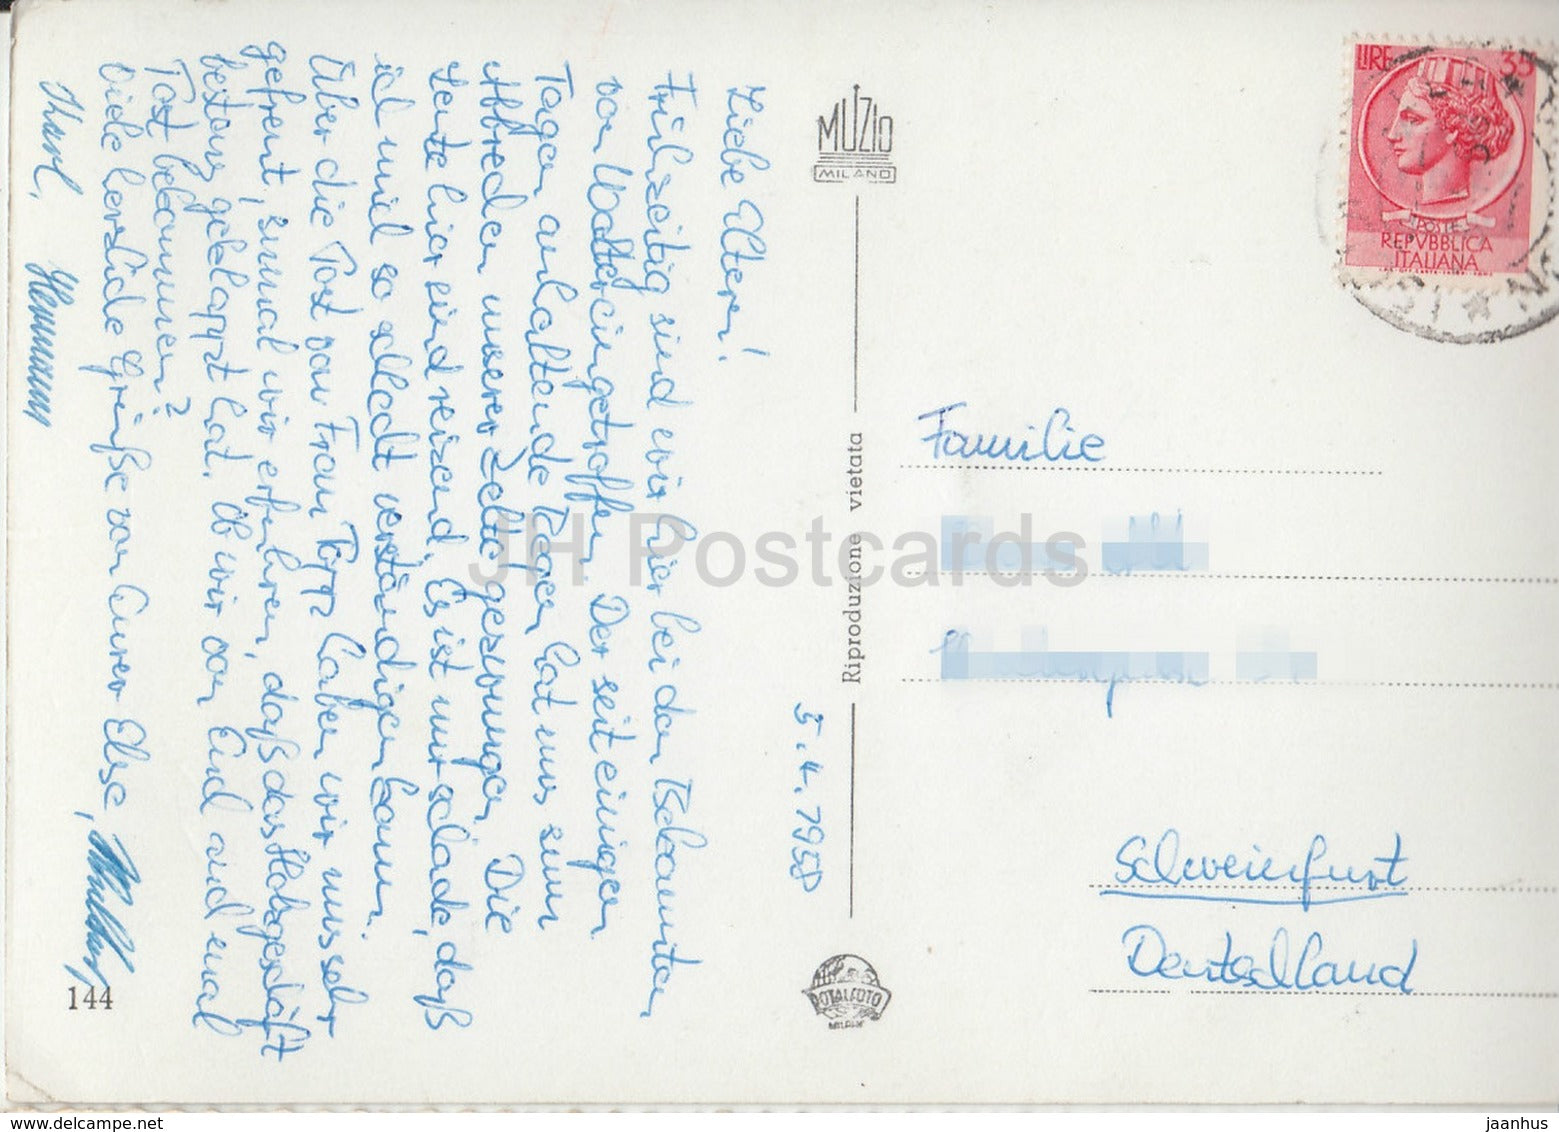 5.4.1958
Liebe Eltern!
Frühzeitig sind wir hier bei den Bekannten
von Walter eingetroffen. Der seit einigen
Tagen anhaltende Regen hat uns zum
Abbrechen unserer Zelte gezwungen. Die
Leute hier sind reizend. Es ist nur schade, daß
ich mich so schlecht verständigen kann.
Über die Post von Frau Popp haben wir uns sehr
gefreut, zumal wir erfuhren, daß das Hofgeschäft
bestens geklappt hat. Ob wir von Euch auch einmal
Post bekommen?
Viele herzliche Grüße von Eurer Else,
Karl, Hermann
144
MUZIO
MILANO
Riproduzione vietata
ROTALFOTO
MILANO
LIRE 35
POSTE
REPVBBLICA
ITALIANA
Familie
Schweinfurt
Deutschland
JH Postcards
www.delcampe.net
jaanhus